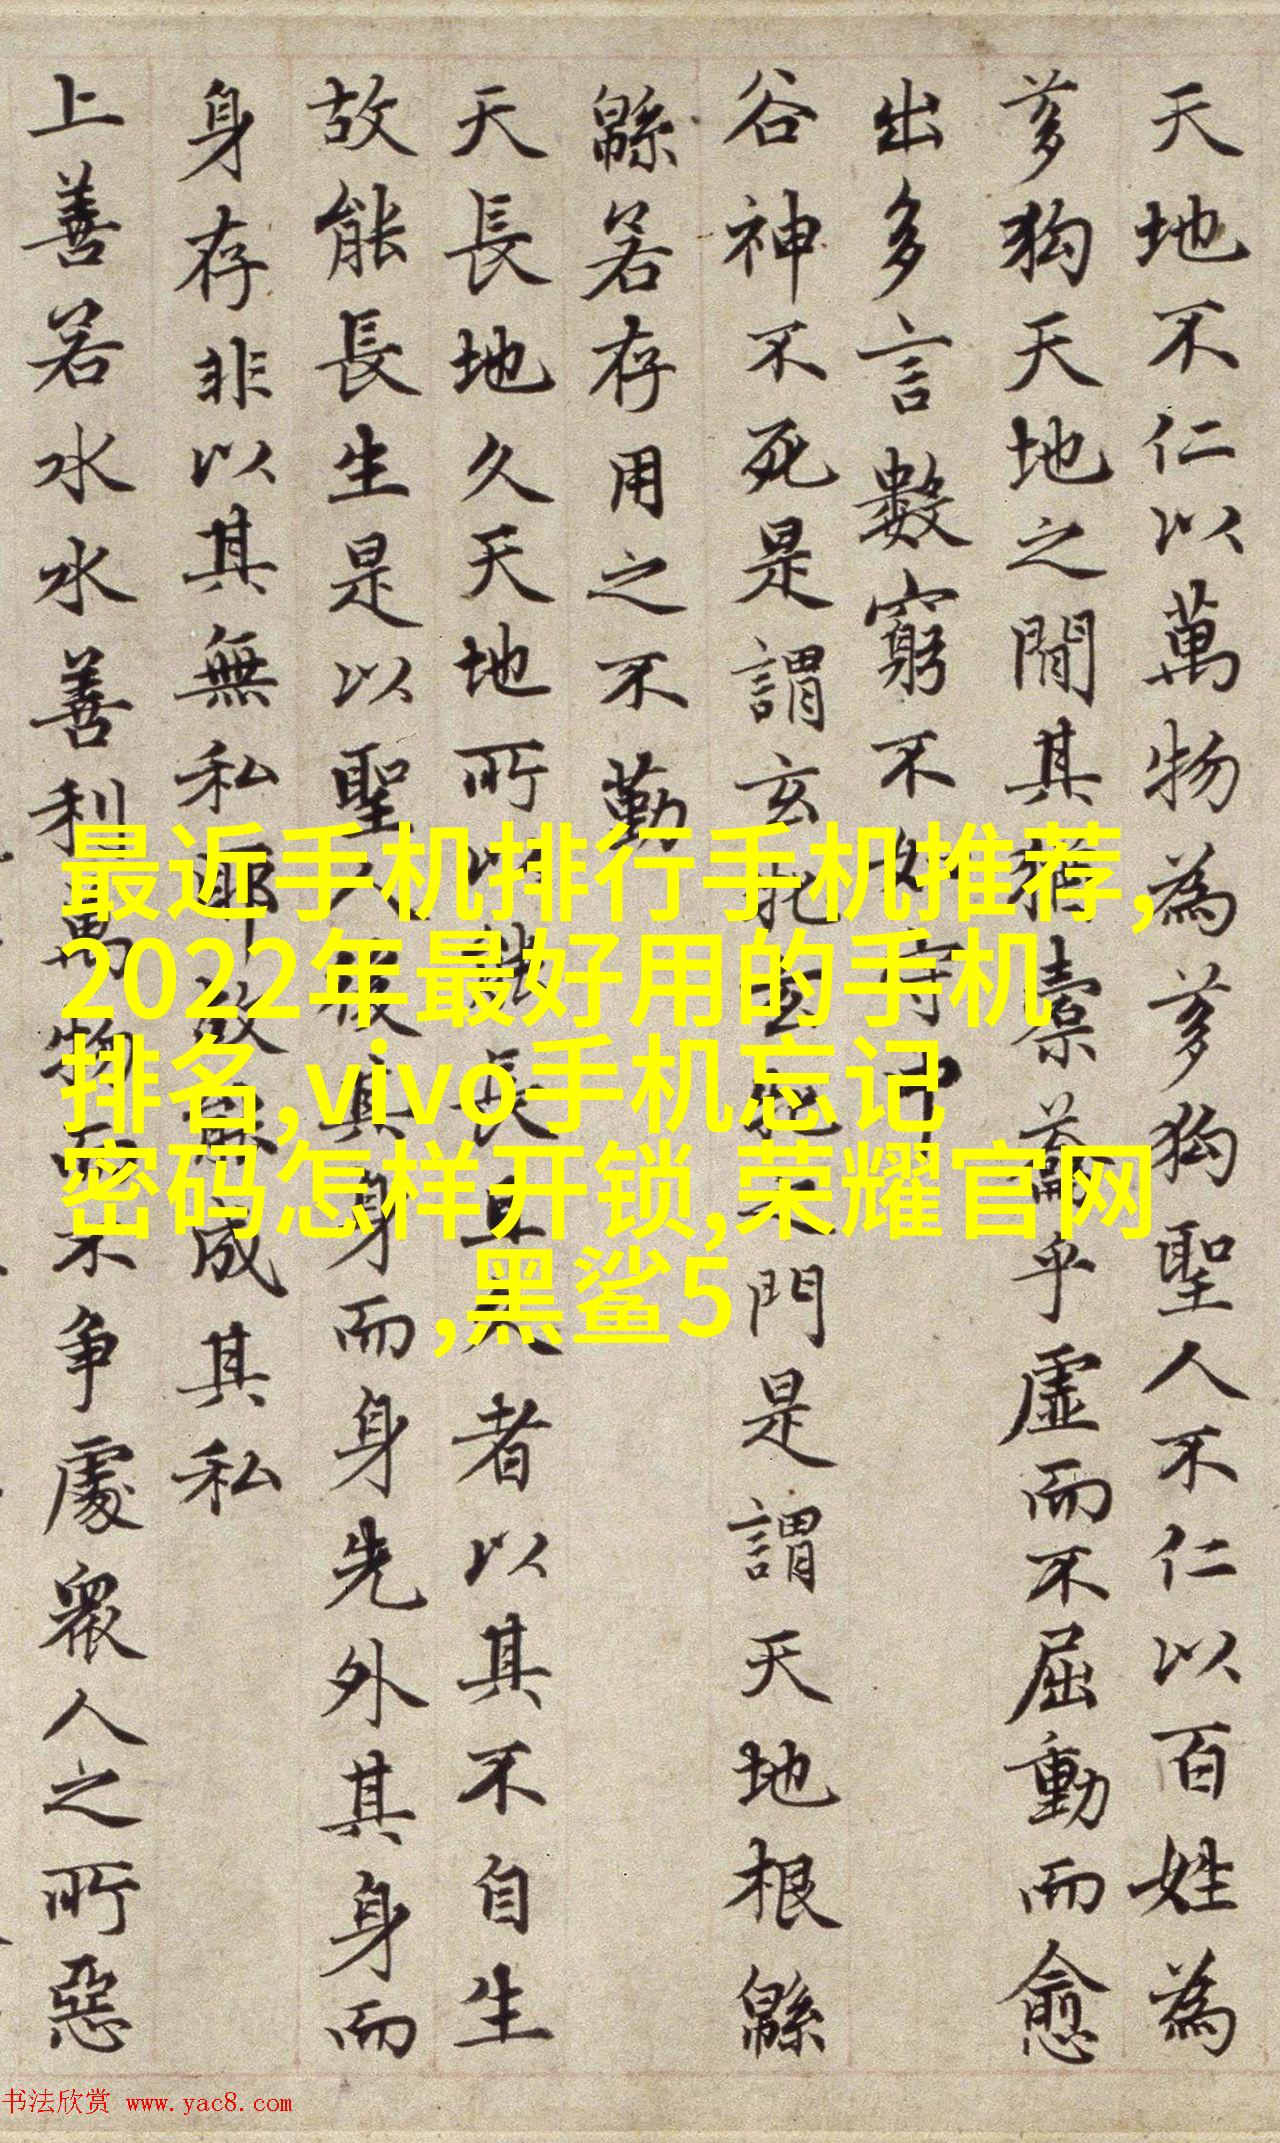 天地不仁以萬物為芻狗聖人不仁以百姓為
芻狗天地之間其猶橐籥乎虛而不屈動而愈
出多言數窮不如守中
谷神不死是謂玄牝玄牝之門是謂天地根緜
緜若存用之不勤
天長地久天地所以能長且久者以其不自生
故能長生是以聖人後其身而身先外其身而
身存非以其無私耶故能成其私
上善若水水善利萬物而不争處衆人之所惡
最近手机排行手机推荐,
2022年最好用的手机
排名,vivo手机忘记
密码怎样开锁,荣耀官网
,黑鲨5
书法欣赏 www.yac8.com